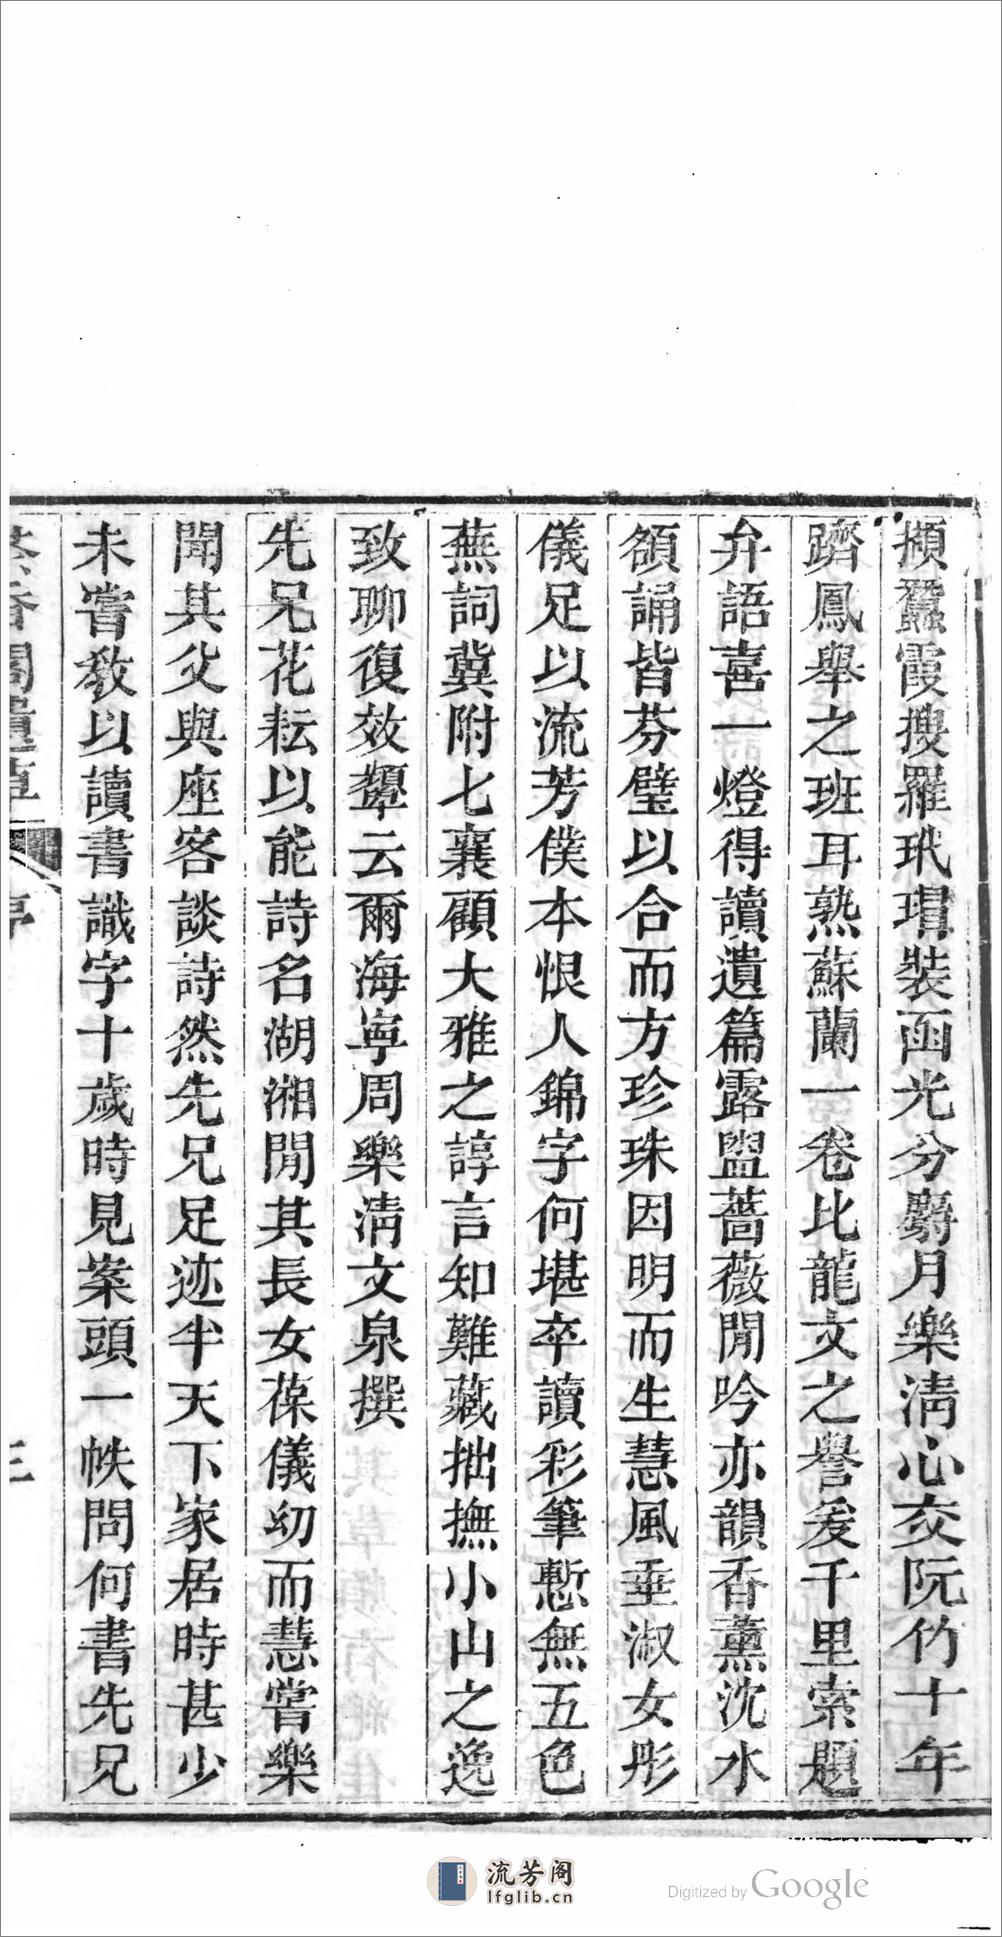 擷蠶霞搜羅玳瑁裝函光分麝月樂淸心交阮竹十年
躋鳳舉之班耳熟蘇蘭一卷比龍文之譽爰千里索題
弁語喜一燈得讀遺篇露盥薔薇閒吟亦韻香薰沈水
頟誦皆芬璧以合而方珍珠因明而生慧風垂淑女彤
儀足以流芳僕本恨人錦字何堪卒讀彩筆慙無五色
蕪詞冀附七襄顧大雅之諄言知難藏拙撫小山之逸
致聊復效顰云爾海寧周樂淸文泉撰
先兄花耘以能詩名湖湘閒其長女葆儀幼而慧嘗樂
聞其父與座客談詩然先兄足迹半天下家居時甚少
未嘗敎以讀書識字十歲時見案頭一帙問何書先兄
香閣遺草
序
三
流芳阁
lfglib.cn
Digitized by Google